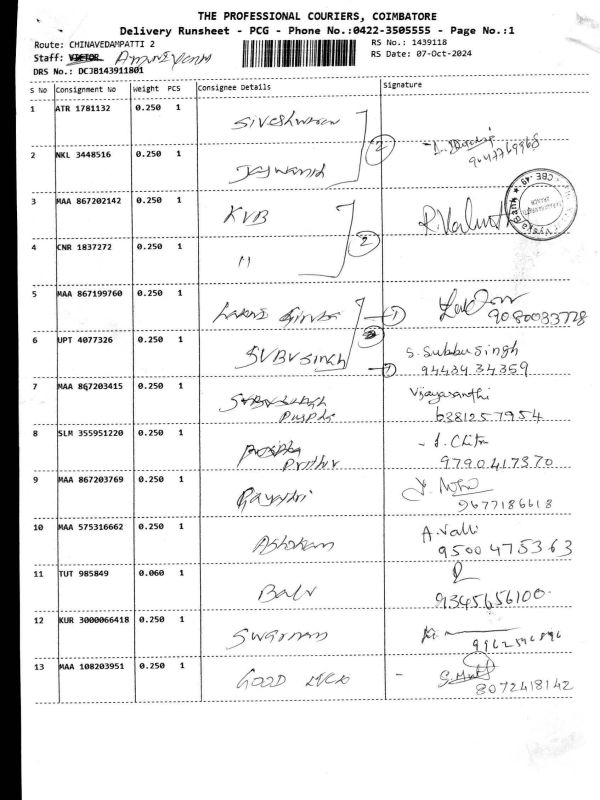 THE PROFESSIONAL COURIERS, COIMBATORE
Delivery Runsheet - PCG - Phone No.:0422-3505555 - Page No.:1
Route: CHINAVEDAMPATTI 2
RS No.: 1439118
Staff:
RS Date: 07-Oct-2024
DRS No.: DCJB143911801
S No Consignment No Weight PCS Consignee Details Signature
1 ATR 1781132 0.250 1 Siveshwaran
2 NKL 3448516 0.250 1 2
3 MAA 867202142 0.250 1 KVB
4 CNR 1837272 0.250 1 11 2
5 MAA 867199760 0.250 1 1 9080033728
6 UPT 4077326 0.250 1 SUBU Singh 1 S. Subbu Singh
9443434359
7 MAA 867203415 0.250 1 Puspha Vijayasanthi
6381257954
8 SLM 355951220 0.250 1 - J. Chitra
9790417370
9 MAA 867203769 0.250 1 Gayathri
9677186618
10 MAA 575316662 0.250 1 Ashokan A. Valli
9500475363
11 TUT 985849 0.060 1 Balu
9345656100
12 KUR 3000066418 0.250 1 Swarnam
13 MAA 108203951 0.250 1 GOOD -
8072418142